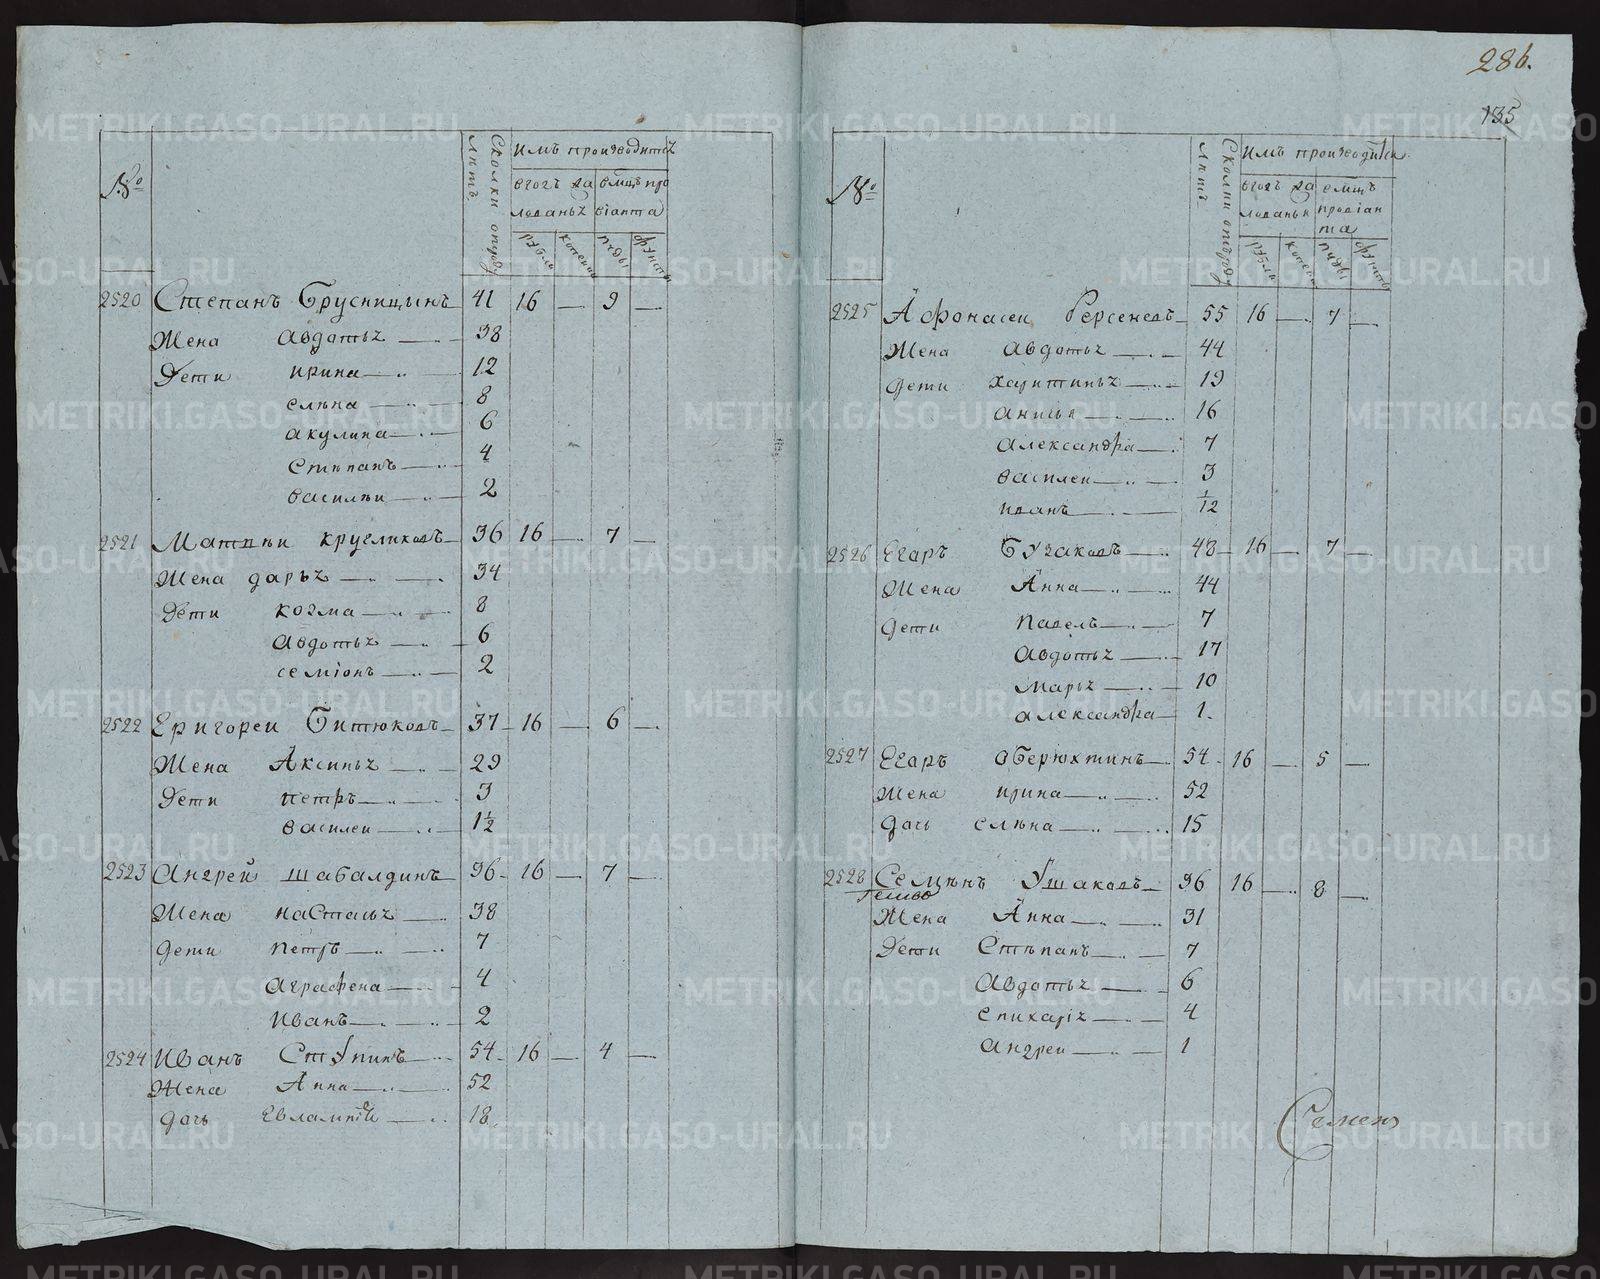 286.
135
№
Сколки отроду лѣтъ
имъ производитъ
вгодъ жа лованьж
вмцъ про віанта
рубль
копеики
пуды
фунты
2520 Степанъ Брусницынъ 41 16 — 9 —
Жена Авдотьж 38
Дети ирина 12
елѣна 8
акулина 6
Стѣпанъ 4
василѣи 2
2521 Матвѣи кругликовъ 36 16 — 7 —
Жена дарьж 34
Дети козма 8
Авдотьж 6
семіонъ 2
2522 Григореи Битюковъ 37 16 — 6 —
Жена Аксиньж 29
Дети петръ 3
василеи 1½
2523 Андрей шабалдинъ 36 16 — 7 —
Жена настасьж 38
дети петръ 7
аграфена 4
иванъ 2
2524 Иванъ Ступинъ 54 16 — 4 —
Жена Анна 52
дочь Евлампіи 18
№
Сколки отъроду лѣтъ
имъ производитъ
вгодъ жа лованьи
вмцъ правіан та
рубль
копеики
пуды
фунты
2525 Афонасеи Персеневъ 55 16 — 7 —
Жена Авдотьж 44
дети харитиньж 19
анисья 16
александра 7
василеи 3
иванъ 1/12
2526 Егаръ Бузаковъ 48 16 — 7 —
Жена Анна 44
дети павелъ 7
Авдотьж 17
марьж 10
александра 1
2527 Егаръ оберюхтинъ 54 16 — 5 —
Жена ирина 52
дочь елѣна 15
2528 Семѣнъ Ушаковъ 36 16 — 8 —
Жена Анна 31
Дети Стѣпанъ 7
Авдотьж 6
епихаріж 4
андреи 1
Семенъ
METRIKI.GASO-URAL.RU